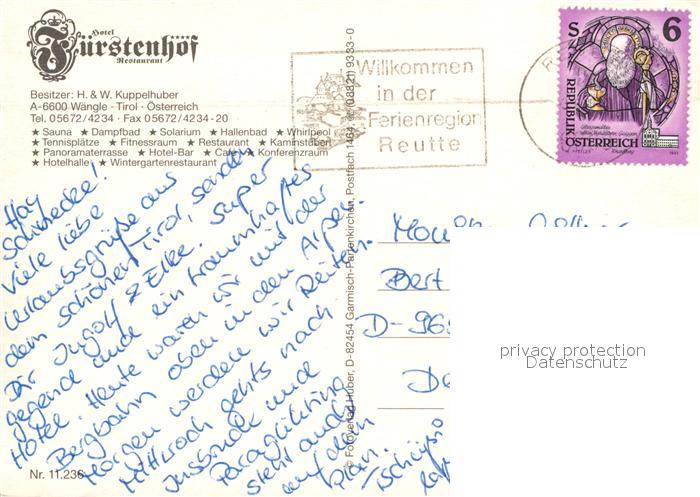 Hotel
Fürstenhof
Restaurant
Besitzer: H. & W. Kuppelhuber
A-6600 Wängle - Tirol - Österreich
Tel. 05672/4234 · Fax 05672/4234-20
★ Sauna ★ Dampfbad ★ Solarium ★ Hallenbad ★ Whirlpool
★ Tennisplätze ★ Fitnessraum ★ Restaurant ★ Kaminstüberl
★ Panoramaterrasse ★ Hotel-Bar ★ Café ★ Konferenzraum
★ Hotelhalle ★ Wintergartenrestaurant
Hay
Schnecke!
Viele liebe
Urlaubsgrüße aus
dem schönen Tirol, senden
Dir Ingolf & Elke. Super
gegend und ein traumhaftes
Hotel. Heute waren wir mit der
Bergbahn oben in den Alpen.
Morgen werden wir Reiten.
Mittwoch gehts nach
Insbruck und
Paragliding
steht auch
auf dem
Plan.
Tschüssi
Nr. 11.236
© Fotoverlag Huber, D-82454 Garmisch-Partenkirchen, Postfach 1464, (08821) 9333-0
Willkommen
in der
Ferienregion
Reutte
S 6
REPUBLIK
ÖSTERREICH
Bert
D-96
privacy protection
Datenschutz